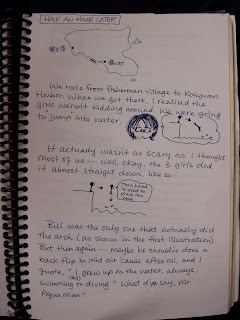 HALF AN HOUR LATER
We rode from fishermen village to Kaiyuan
Harbor. When we got there, I realized the
girls weren't kidding around. We were going
to jump into water.
It actually wasn't as scary as I thought.
Most of us .... well, okay, the 3 girls did
it almost straight down, like so:
Paul was the only one that actually did
the arch (as shown in the first illustration)
But then again .... maybe he should've done a
back flip in mid air cause after all, and I
quote, "I grew up in the water, always
swimming or diving." What d'ya say, Mr.
Aquaman?